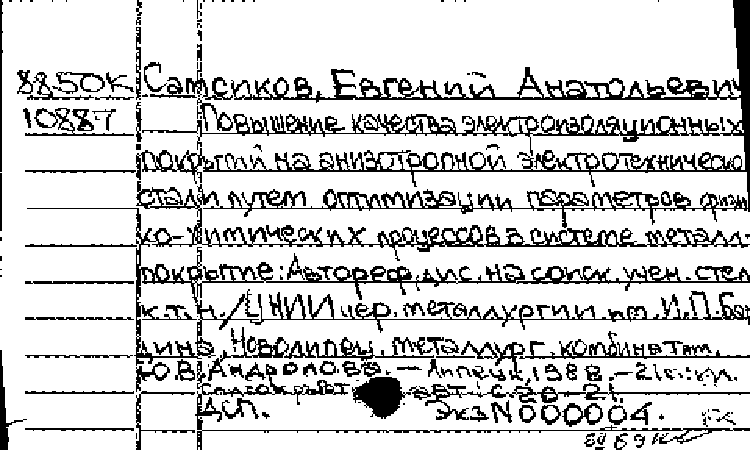 8850к Сатсиков, Евгений Анатольевич
10887 Повышение качества электроизоляционных
покрытий на анизотропной электротехническо
стали путем оптимизации параметров физи
ко-химических процессов в системе металл-
покрытие: Автореф. дис. на соиск. учен. степ
к.т.н. / ЦНИИ чер. металлургии им. И.П.Бар
дина, Новолипец. металлург. комбинат им.
Ю.В.Андропова. — Липецк, 1988. — 21с.: ил.
с. 20-21.
ДСП. Экз N 000004.